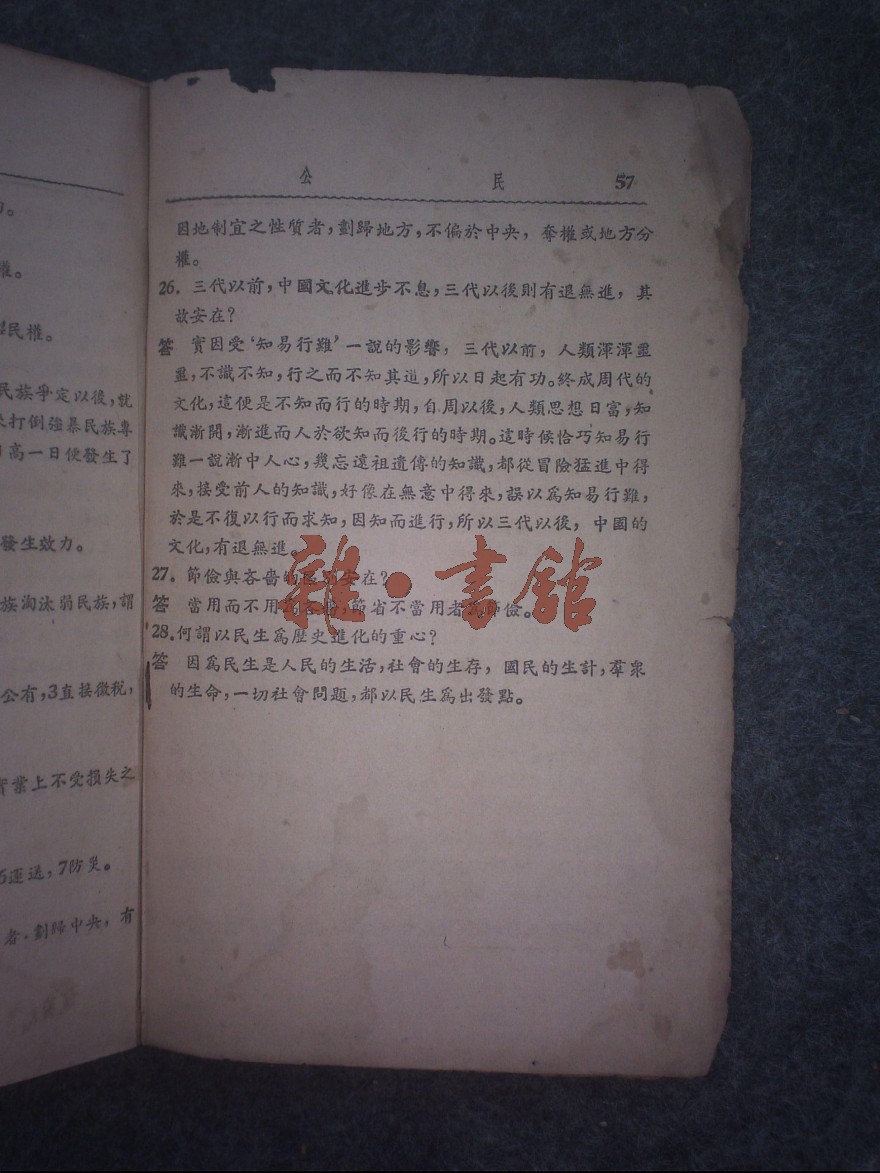 公 民 57
因地制宜之性質者,劃歸地方,不偏於中央, 奪權或地方分
權。
26. 三代以前,中國文化進步不息,三代以後則有退無進, 其
故安在?
答 實因受‘知易行難’一說的影響, 三代以前, 人類渾渾噩
噩,不識不知,行之而不知其道,所以日起有功。終成周代的
文化,這便是不知而行的時期,自周以後,人類思想日富,知
識漸開,漸進而人於欲知而後行的時期。這時候恰巧知易行
難一說漸中人心,幾忘遠祖遺傳的知識,都從冒險猛進中得
來,接受前人的知識,好像在無意中得來,誤以爲知易行難,
於是不復以行而求知,因知而進行,所以三代以後, 中國的
文化,有退無進。
27. 節儉與吝嗇的區別安在?
答 當用而不用爲吝嗇,節省不當用者爲節儉。
28. 何謂以民生爲歷史進化的重心?
答 因爲民生是人民的生活,社會的生存, 國民的生計,羣衆
的生命,一切社會問題,都以民生爲出發點。
雜·書館
權。
民權。
民族爭定以後,就
打倒強暴民族專
高一日便發生了
發生效力。
族淘汰弱民族,謂
公有,3直接徵稅,
實業上不受損失之
運送,7防災。
者,劃歸中央, 有